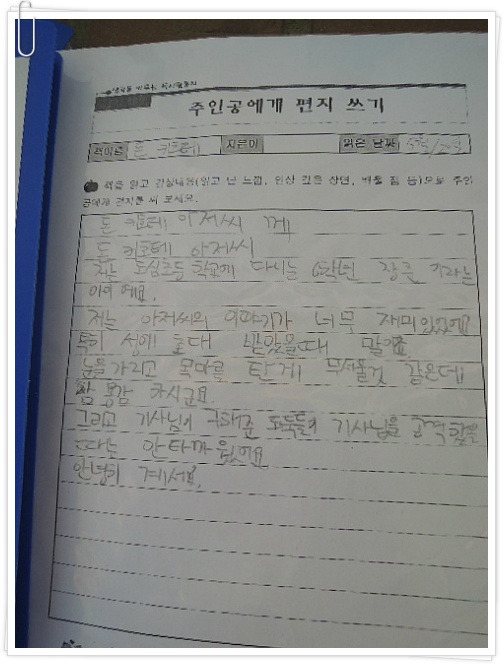 주인공에게 편지 쓰기
책이름 돈 키호테 지은이 읽은 날짜 5월/2일
책을 읽고 간실내용(읽고 난 느낌, 인상 깊은 장면, 배울 점 등)으로 주인
공에게 편지를 써 보세요.
돈 키호테 아저씨 께
돈 키호테 아저씨
저는 도심초등학교에 다시는 6학년 장준 기라는
아이 에요.
저는 아저씨의 이야기가 너무 재미있었어요
특히 성에 초대 받았을때 말에요.
눈을 가리고 목마를 탄게 무서울것 같은데
참 용감 하시군요.
그리고 기사님이 구해준 죄수들이 기사님을 공격했을
때는 안타까 웠어요
안녕히 계세요.